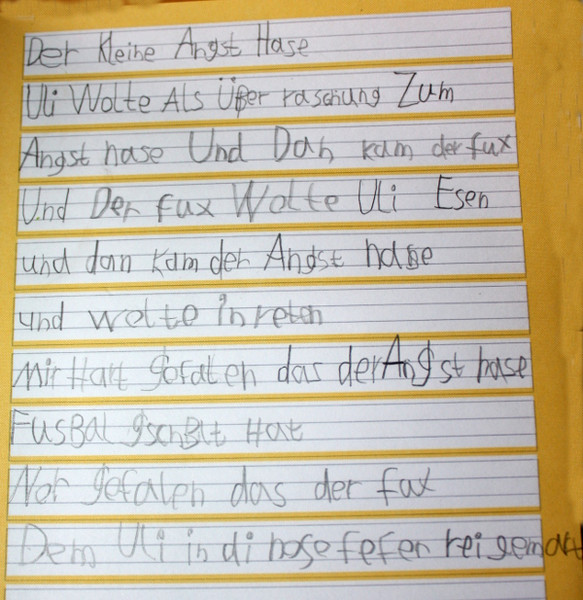 Der kleine Angst Hase
Uli Wolte Als Über raschung Zum
Angst hase Und Dan kam der fux
Und Der fux Wolte Uli Esen
und dan kam der Angst hase
und wolte in reten
Mir Hart gefalen das der Angst hase
FusBal gschBlt Hat
gefalen das der fux
Dem Uli in di hose fefer rei gemart